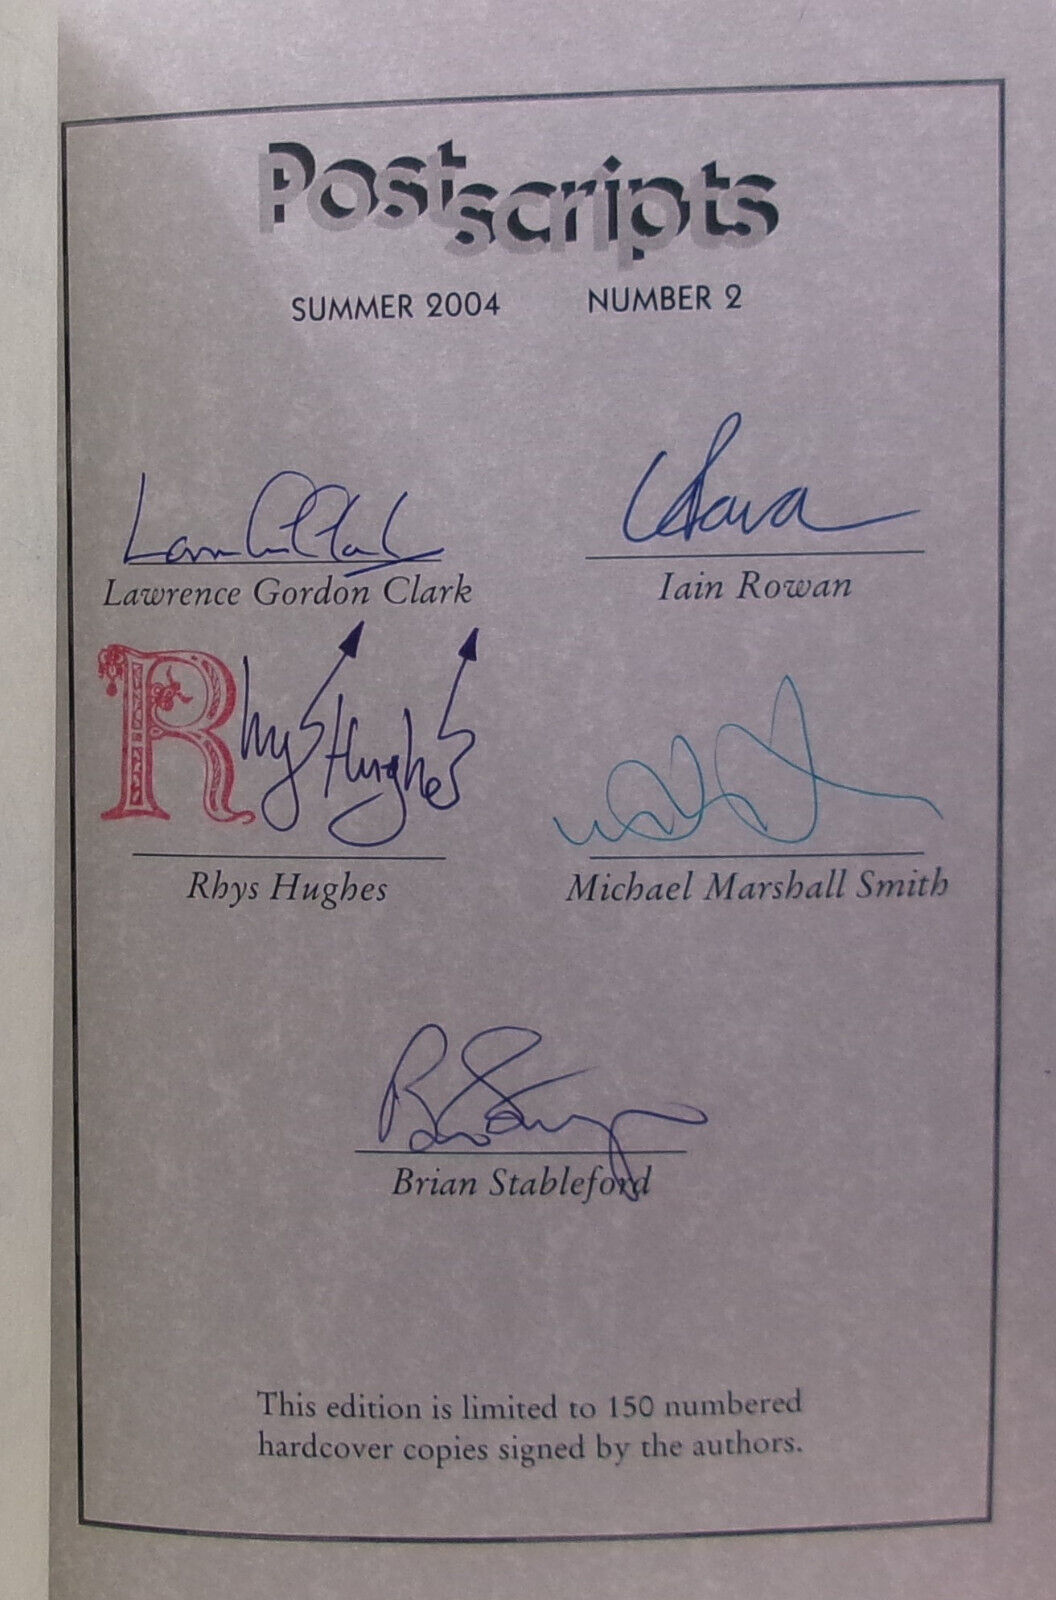 Postscripts
SUMMER 2004 NUMBER 2
Lawrence Gordon Clark
Iain Rowan
Rhys Hughes
Rhys Hughes
Michael Marshall Smith
Brian Stableford
This edition is limited to 150 numbered
hardcover copies signed by the authors.